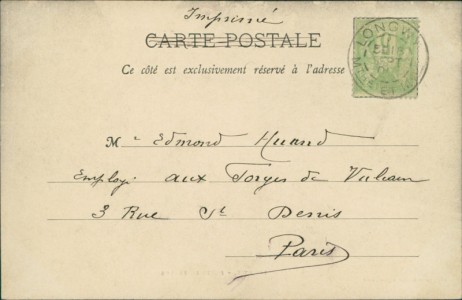 Imprimé
CARTE POSTALE
Ce côté est exclusivement réservé à l'adresse
LONGWY
M. Edmond Huard
Employé aux Forges de Vulcain
3 Rue St Denis
Paris